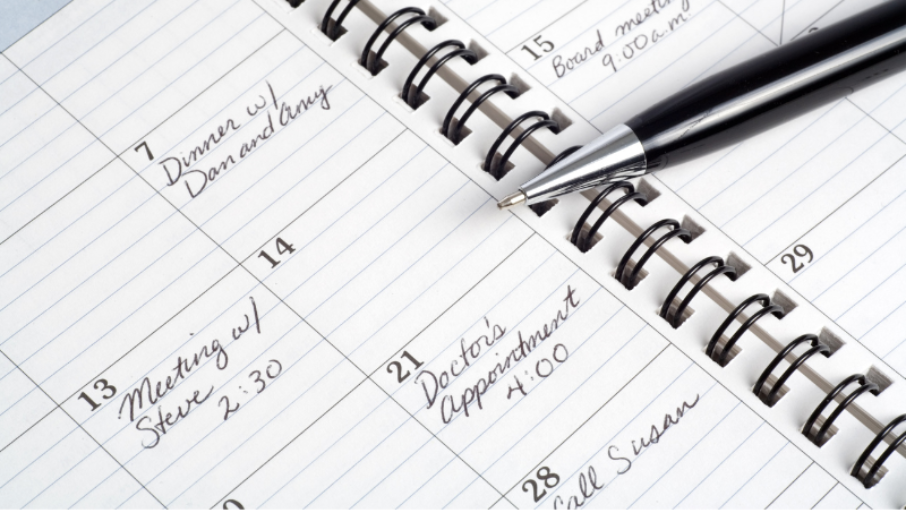 15
Board meeting
9:00 a.m.
7
Dinner w/
Dan and Amy
14
29
13
Meeting w/
Steve 2:30
21
Doctor's
appointment
4:00
28
Call Susan